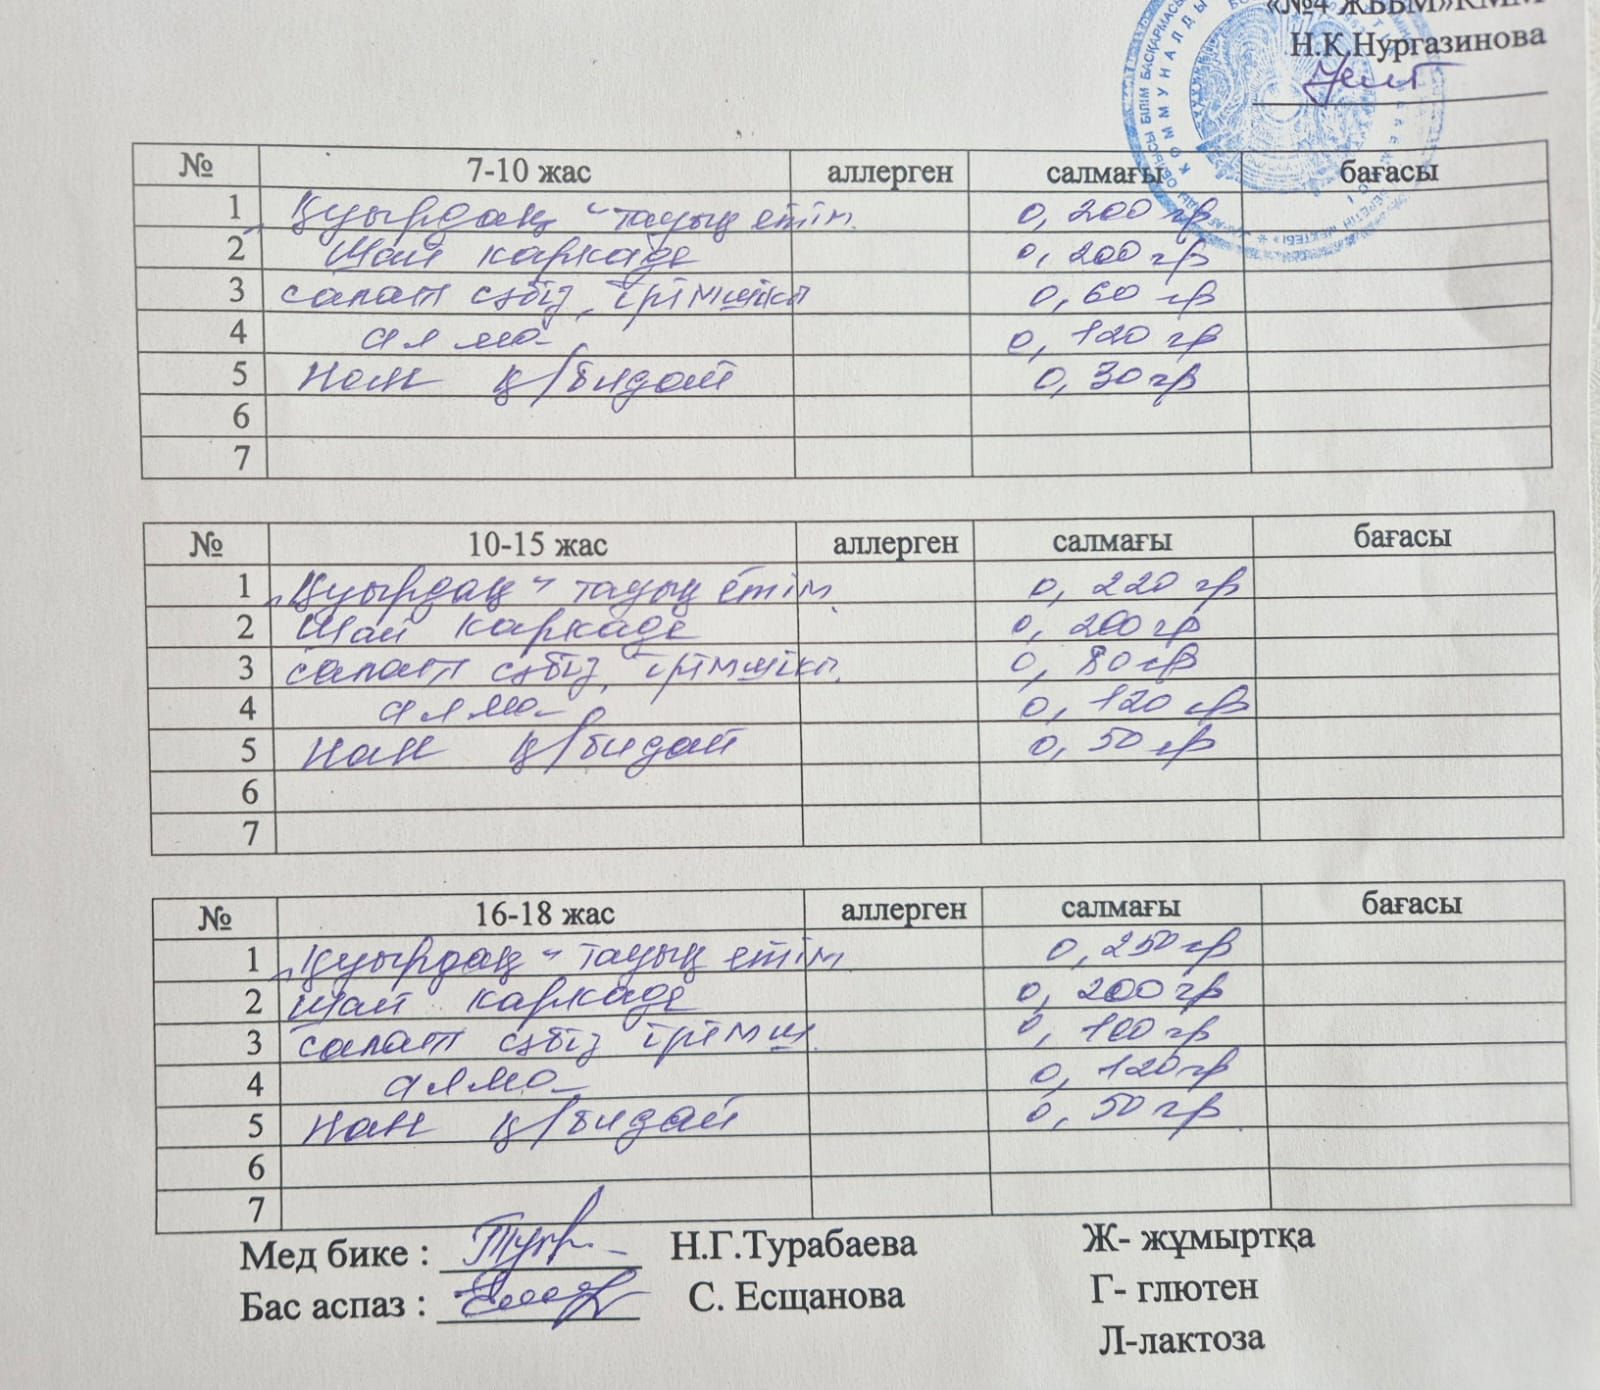 «№4 ЖББМ»КММ
Н.К.Нургазинова
№ 7-10 жас аллерген салмағы бағасы
1 Қуырдақ - тауық етін. 0,200 гр
2 Шай каркаде 0,200 гр
3 салат сәбіз, ірімшікп 0,60 гр
4 алма 0,120 гр
5 Нан қ/бидай 0,30 гр
6
7
№ 10-15 жас аллерген салмағы бағасы
1 Қуырдақ - тауық етін. 0,220 гр
2 Шай каркаде 0,200 гр
3 салат сәбіз, ірімшікп. 0,80 гр
4 алма 0,120 гр
5 Нан қ/бидай 0,50 гр
6
7
№ 16-18 жас аллерген салмағы бағасы
1 Қуырдақ - тауық етін. 0,250 гр
2 шай каркаде 0,200 гр
3 салат сәбіз ірімш. 0,100 гр
4 алма 0,120 гр
5 Нан қ/бидай 0,50 гр.
6
7
Мед бике : Н.Г.Турабаева Ж- жұмыртқа
Бас аспаз : С. Есщанова Г- глютен
Л-лактоза